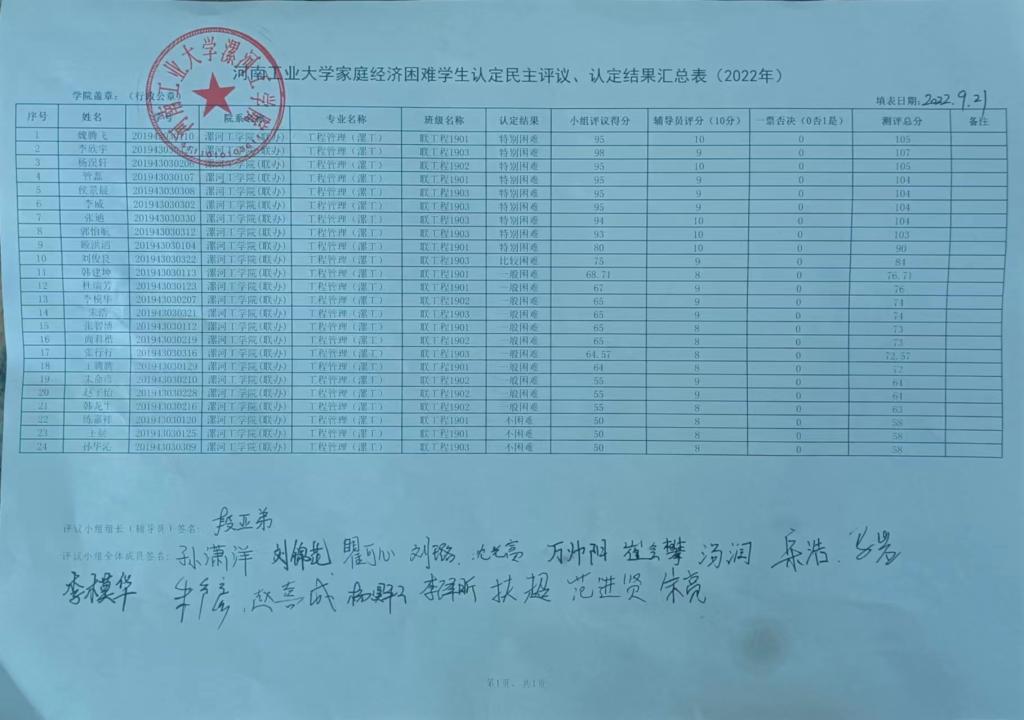 河南工业大学漯河工学院
河南工业大学家庭经济困难学生认定民主评议、认定结果汇总表（2022年）
学院盖章：（行政公章） 填表日期：2022.9.21
序号 姓名 院系 专业名称 班级名称 认定结果 小组评议得分 辅导员评分（10分） 一票否决（0否1是） 测评总分 备注
1 魏腾飞 漯河工学院(联办) 工程管理（漯工） 联工程1901 特别困难 95 10 0 105
2 李欣宇 漯河工学院(联办) 工程管理（漯工） 联工程1903 特别困难 98 9 0 107
3 漯河工学院(联办) 工程管理（漯工） 联工程1902 特别困难 95 10 0 105
4 管磊 201943030107 漯河工学院(联办) 工程管理（漯工） 联工程1901 特别困难 95 9 0 104
5 侯景晨 201943030308 漯河工学院(联办) 工程管理（漯工） 联工程1903 特别困难 95 9 0 104
6 李威 201943030302 漯河工学院(联办) 工程管理（漯工） 联工程1903 特别困难 95 9 0 104
7 张迪 201943030330 漯河工学院(联办) 工程管理（漯工） 联工程1903 特别困难 94 10 0 104
8 郭怡航 201943030312 漯河工学院(联办) 工程管理（漯工） 联工程1903 特别困难 93 10 0 103
9 201943030104 漯河工学院(联办) 工程管理（漯工） 联工程1901 特别困难 80 10 0 90
10 刘俊良 201943030322 漯河工学院(联办) 工程管理（漯工） 联工程1903 比较困难 75 9 0 84
11 韩建坤 201943030113 漯河工学院(联办) 工程管理（漯工） 联工程1901 一般困难 68.71 8 0 76.71
12 杜瑞芳 201943030123 漯河工学院(联办) 工程管理（漯工） 联工程1901 一般困难 67 9 0 76
13 李模华 201943030207 漯河工学院(联办) 工程管理（漯工） 联工程1902 一般困难 65 9 0 74
14 宋浩 201943030321 漯河工学院(联办) 工程管理（漯工） 联工程1903 一般困难 65 9 0 74
15 张智博 201943030112 漯河工学院(联办) 工程管理（漯工） 联工程1901 一般困难 65 8 0 73
16 201943030219 漯河工学院(联办) 工程管理（漯工） 联工程1902 一般困难 65 8 0 73
17 张行行 201943030316 漯河工学院(联办) 工程管理（漯工） 联工程1903 一般困难 64.57 8 0 72.57
18 201943030129 漯河工学院(联办) 工程管理（漯工） 联工程1901 一般困难 64 8 0 72
19 201943030210 漯河工学院(联办) 工程管理（漯工） 联工程1902 一般困难 55 9 0 64
20 201943030228 漯河工学院(联办) 工程管理（漯工） 联工程1902 一般困难 55 9 0 64
21 韩龙生 201943030216 漯河工学院(联办) 工程管理（漯工） 联工程1902 一般困难 55 8 0 63
22 陈嘉祥 201943030120 漯河工学院(联办) 工程管理（漯工） 联工程1901 不困难 50 8 0 58
23 201943030125 漯河工学院(联办) 工程管理（漯工） 联工程1901 不困难 50 8 0 58
24 201943030309 漯河工学院(联办) 工程管理（漯工） 联工程1903 不困难 50 8 0 58
评议小组组长（辅导员）签名： 段亚弟
评议小组全体成员签名： 孙潇洋 刘锦龙 瞿可心 刘璐 沈光亮 万帅阳 崔会攀 汤润 宋浩
李模华 朱彦 赵喜成 李泽昕 扶超 范进贤 宋亮
第1页，共1页